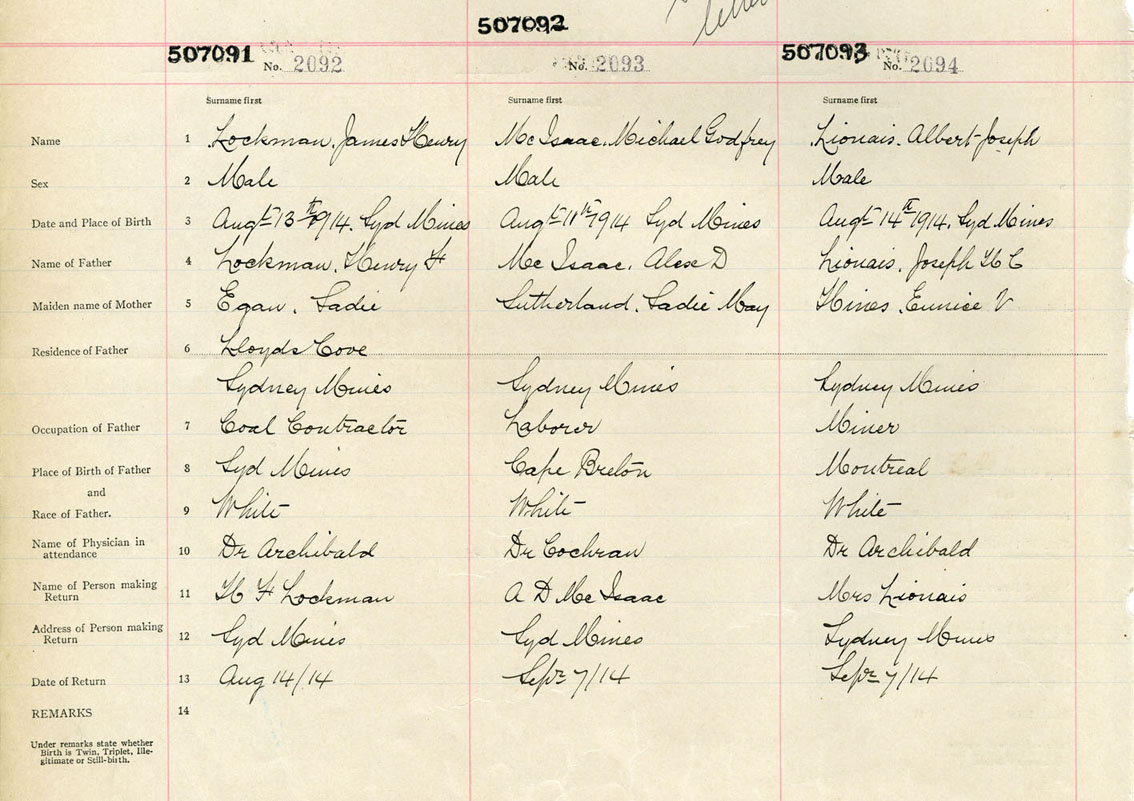 letter
507092
507091 No. 2092 No. 2093 507093 No. 2094
Surname first Surname first Surname first
Name 1 Lockman, James Henry Mc Isaac, Michael Godfrey Lionais, Albert Joseph
Sex 2 Male Male Male
Date and Place of Birth 3 Augt 13th 1914. Syd Mines Augt 11th 1914 Syd Mines Augt 14th 1914. Syd Mines
Name of Father 4 Lockman, Henry F Mc Isaac, Alex D Lionais, Joseph H C
Maiden name of Mother 5 Egan, Sadie Sutherland, Sadie May Hines, Eunice V
Residence of Father 6 Lloyds Cove
Sydney Mines Sydney Mines Sydney Mines
Occupation of Father 7 Coal Contractor Laborer Miner
Place of Birth of Father 8 Syd Mines Cape Breton Montreal
and
Race of Father. 9 White White White
Name of Physician in
attendance 10 Dr Archibald Dr Cochran Dr Archibald
Name of Person making
Return 11 H F Lockman A D Mc Isaac Mrs Lionais
Address of Person making
Return 12 Syd Mines Syd Mines Sydney Mines
Date of Return 13 Aug 14/14 Sept 7/14 Sept 7/14
REMARKS 14
Under remarks state whether
Birth is Twin, Triplet, Ille-
gitimate or Still-birth.